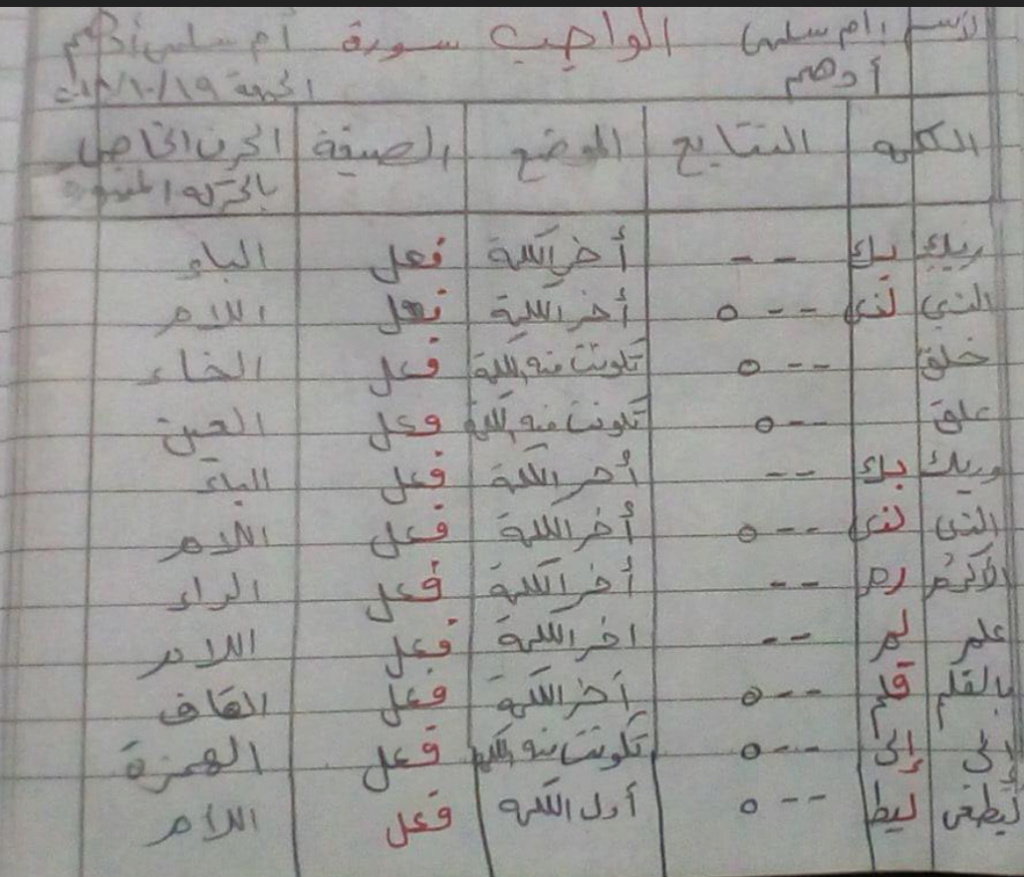 الاسم / ام سلمى الواجب سورة أم سلمى أدهم
أدهم الجمعة ١٩/١٠/
الكلمه التتابع الموضع الصيغة الحرف الخاص
بالحركه
ربك بك -- أخر الكلمة فعل الباء
الذى لذى --٥ أخر الكلمة فعل اللام
خلق --٥ تكونت منه الكلمة فعل الخاء
علق --٥ تكونت منه الكلمة فعل العين
وربك بك -- أخر الكلمة فعل الباء
الذى لذى --٥ أخر الكلمة فعل اللام
الأكرم رم -- أخر الكلمة فعل الراء
علم لم -- اخر الكلمة فعل اللام
بالقلم قلم --٥ أخر الكلمة فعل القاف
إلى إلى --٥ تكونت منه الكلمة فعل الهمزة
ليطغى ليط --٥ أول الكلمه فعل اللام